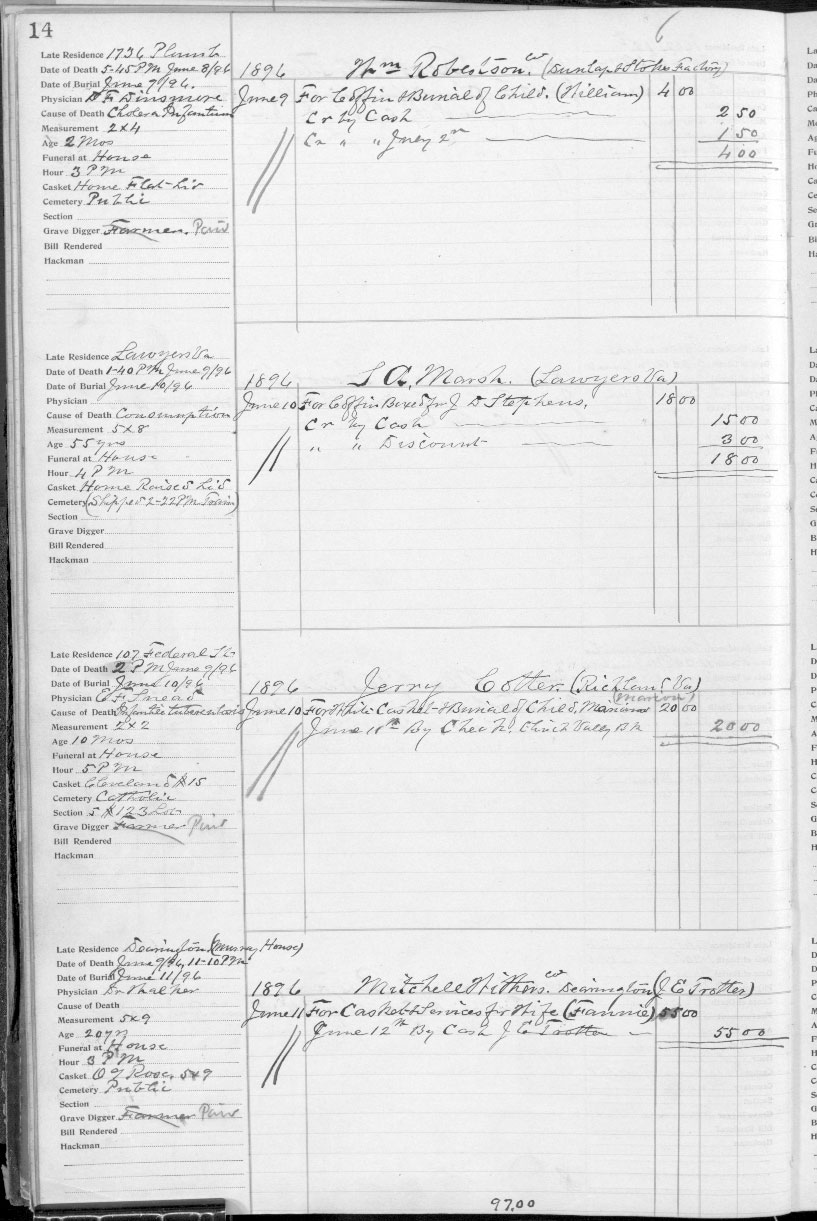 14
6
Late Residence 1736 Plumb
Date of Death 5-45 PM June 8/96
Date of Burial June 9/96.
Physician D F Dinsmore
Cause of Death Cholera Infantum
Measurement 2x4
Age 2 Mos
Funeral at House
Hour 3 PM
Casket Home Flat-Lid
Cemetery Public
Section
Grave Digger Farmer. Paid
Bill Rendered
Hackman
1896 Wm Robertson. Col (Dunlap & Stokes Factory)
June 9 For Coffin & Burial of Child. (William) 4 00
Cr by Cash 2 50
Cr " " July 2nd 1 50
4 00
Late Residence Lawyers Va
Date of Death 1-40 PM June 9/96
Date of Burial June 10/96
Physician
Cause of Death Consumption
Measurement 5x8
Age 55 yrs
Funeral at House
Hour 4 PM
Casket Home Raised Lid
Cemetery (Shipped 2-22 PM Train)
Section
Grave Digger
Bill Rendered
Hackman
1896 S A. Marsh. (Lawyers Va)
June 10 For Coffin Boxed for J D Stephens. 18 00
Cr by Cash 15 00
" " Discount 3 00
18 00
Late Residence 107 Federal St
Date of Death 2 PM June 9/96
Date of Burial June 10/96
Physician E F Snead
Cause of Death Infantile tuberculosis
Measurement 2x2
Age 10 Mos
Funeral at House
Hour 5 PM
Casket Cleveland 5 # 15
Cemetery Catholic
Section 5 # 123 Lot
Grave Digger Farmer Paid
Bill Rendered
Hackman
1896 Jerry Cotter. (Richland Va)
(Marion)
June 10 For White Casket & Burial of Child, 20 00
June 18th By Check. Clinch Vally Bk 20 00
Late Residence Dearington (Murray House)
Date of Death June 9/96, 11-10 PM
Date of Burial June 11/96
Physician Dr Walker
Cause of Death
Measurement 5x9
Age 20 yr
Funeral at House
Hour 3 PM
Casket O G Rose, 5x9
Cemetery Public
Section
Grave Digger Farmer Paid
Bill Rendered
Hackman
1896 Mitchell Withers. col Dearington (J E Trotter)
June 11 For Casket & Services for Wife (Fannie) 55 00
June 12th By Cash J E Trotter 55 00
97.00